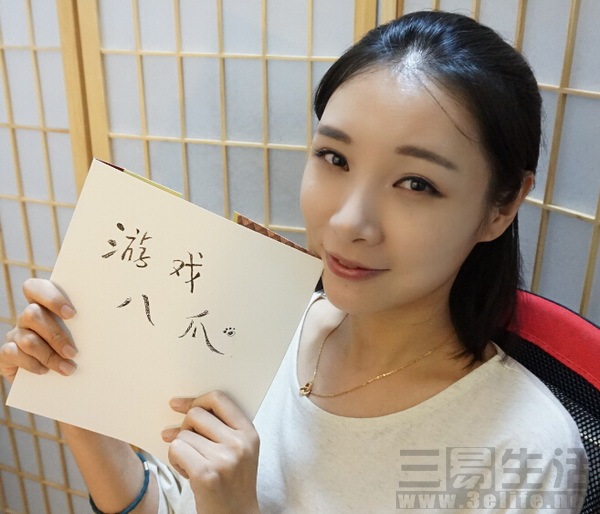 游戏
八爪
三易生活
www.3elife.ne